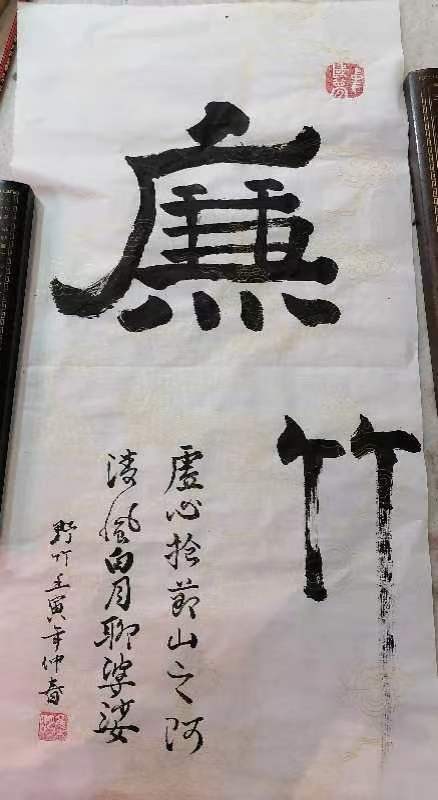 廉
竹
虛心抱節山之阿
清風白月聊婆娑
野竹壬寅年仲春